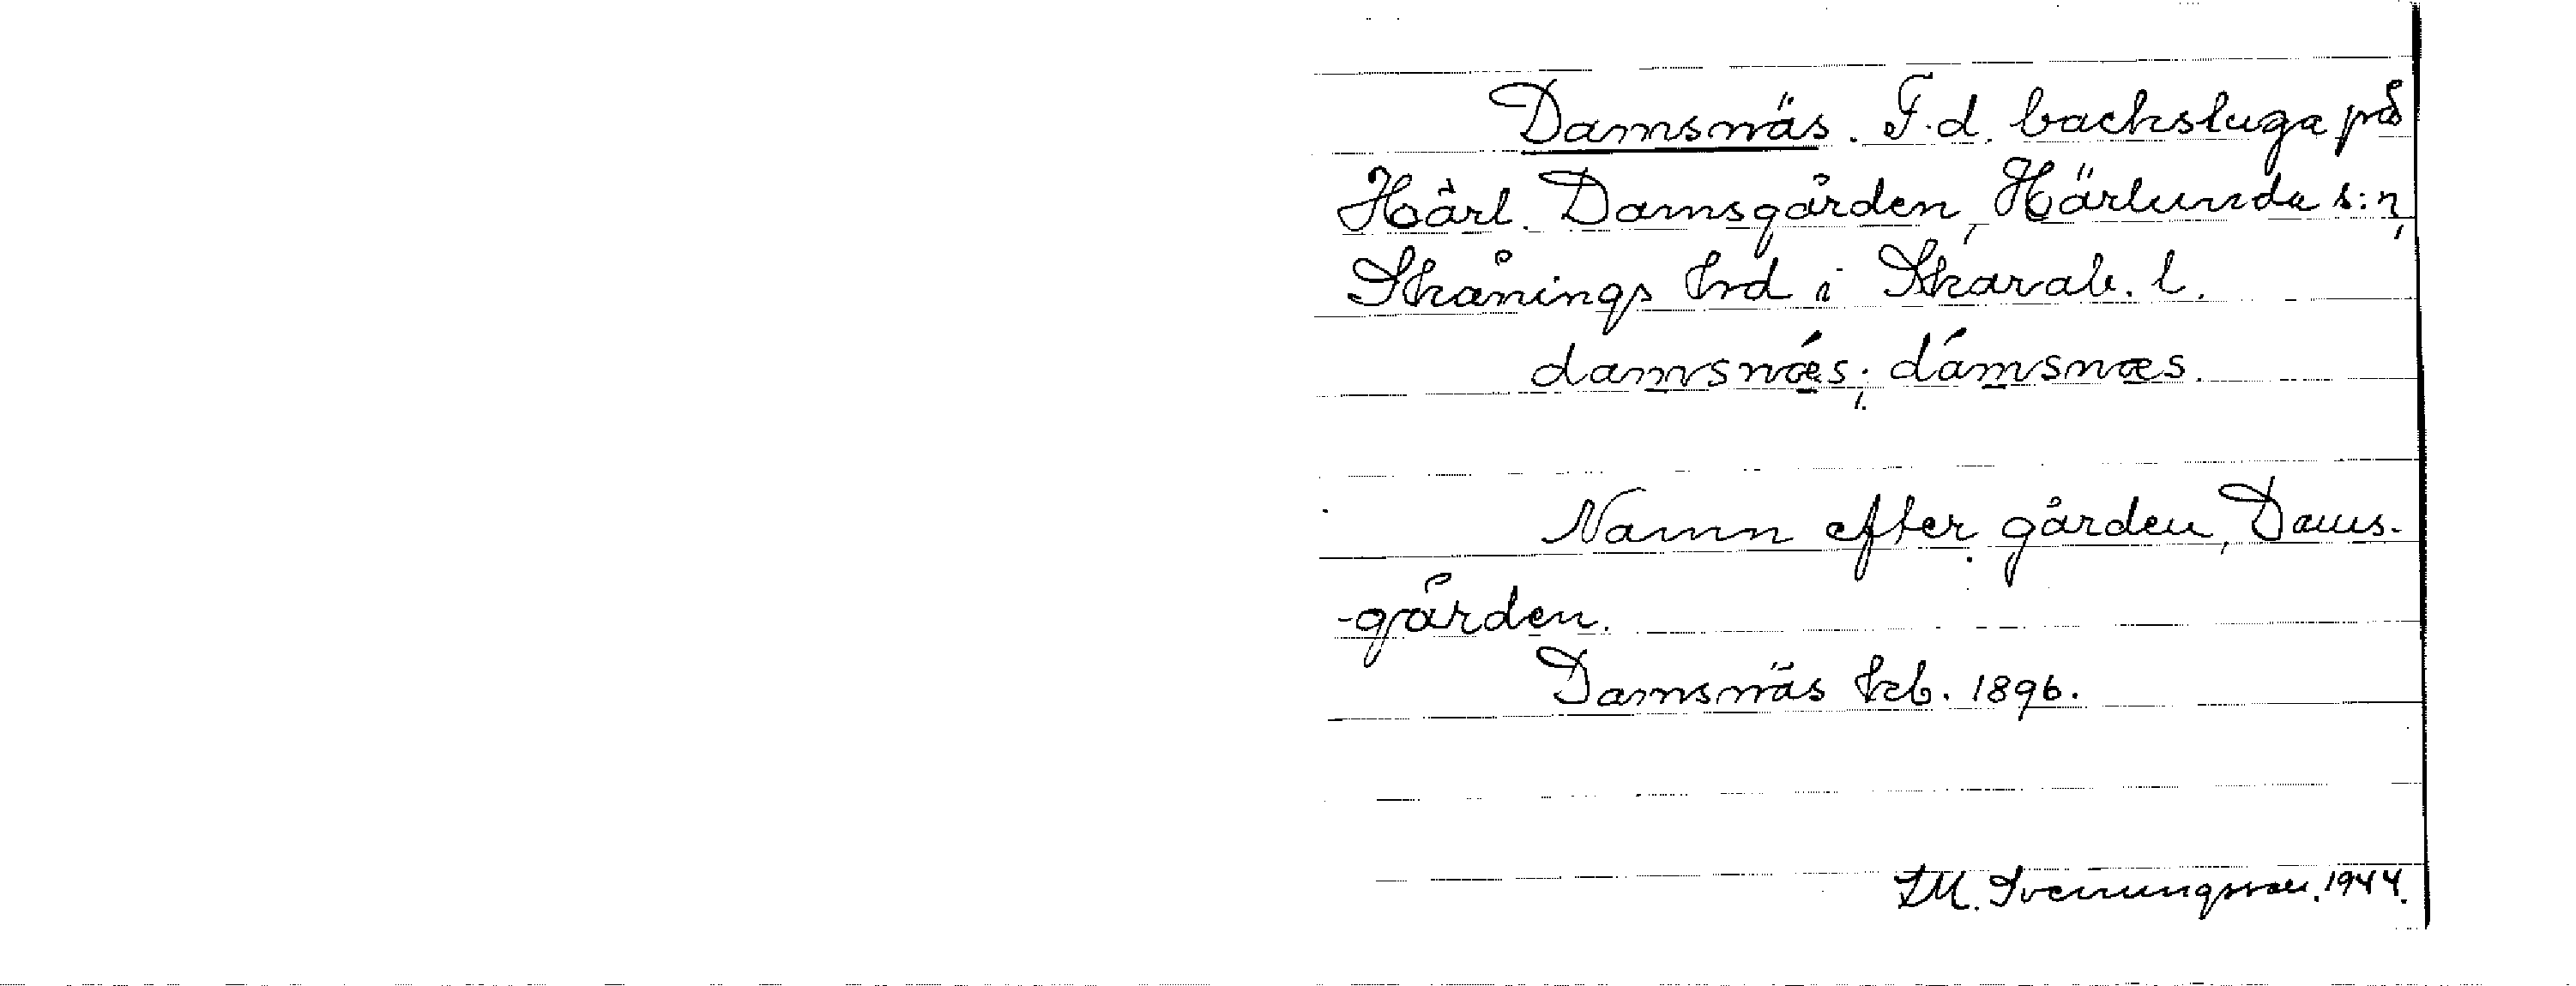 Damsnäs. F.d. backstuga på
Härl. Damsgården, Härlunda s:n,
Skånings hrd i Skarab. l.
damsnǽs; dámsnæs.
Namn efter gården, Dams-
-gården.
Damsnäs hcb. 1896.
S.M. Svenungsson. 1944.